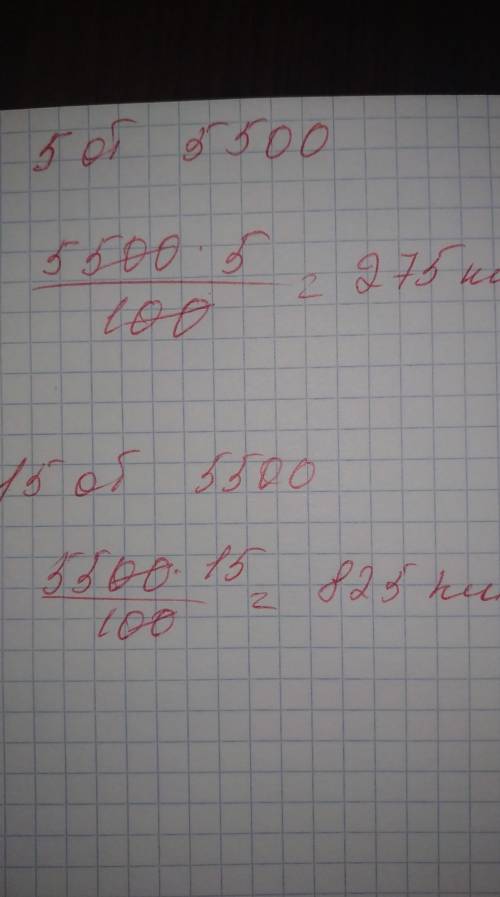 5 от 5500
5500 · 5
100
= 275
15 от 5500
5500 · 15
100
= 825